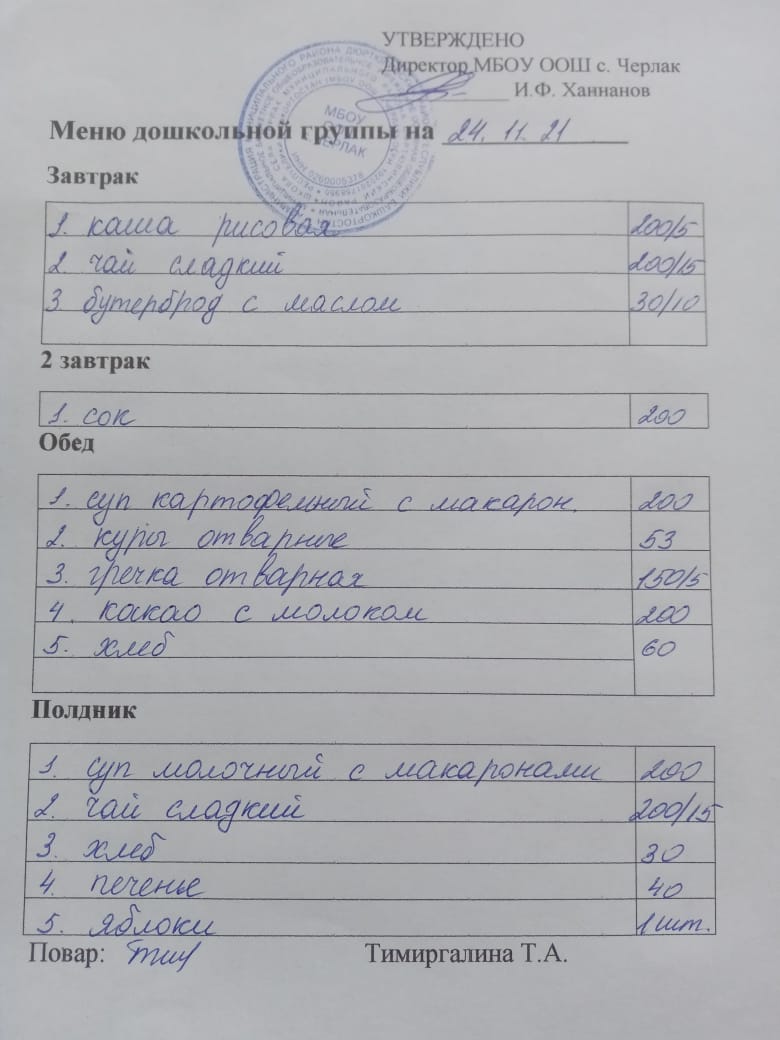 УТВЕРЖДЕНО
Директор МБОУ ООШ с. Черлак
И.Ф. Ханнанов
Меню дошкольной группы на 24.11.21
МБОУ
ЧЕРЛАК
Завтрак
1. каша рисовая 200/5
2. чай сладкий 200/15
3. бутерброд с маслом 30/10
2 завтрак
1. сок 200
Обед
1. суп картофельный с макарон. 200
2. куры отварные 53
3. гречка отварная 150/5
4. какао с молоком 200
5. хлеб 60
Полдник
1. суп молочный с макаронами 200
2. чай сладкий 200/15
3. хлеб 30
4. печенье 40
5. яблоки 1 шт.
Повар: Тимиргалина Т.А.